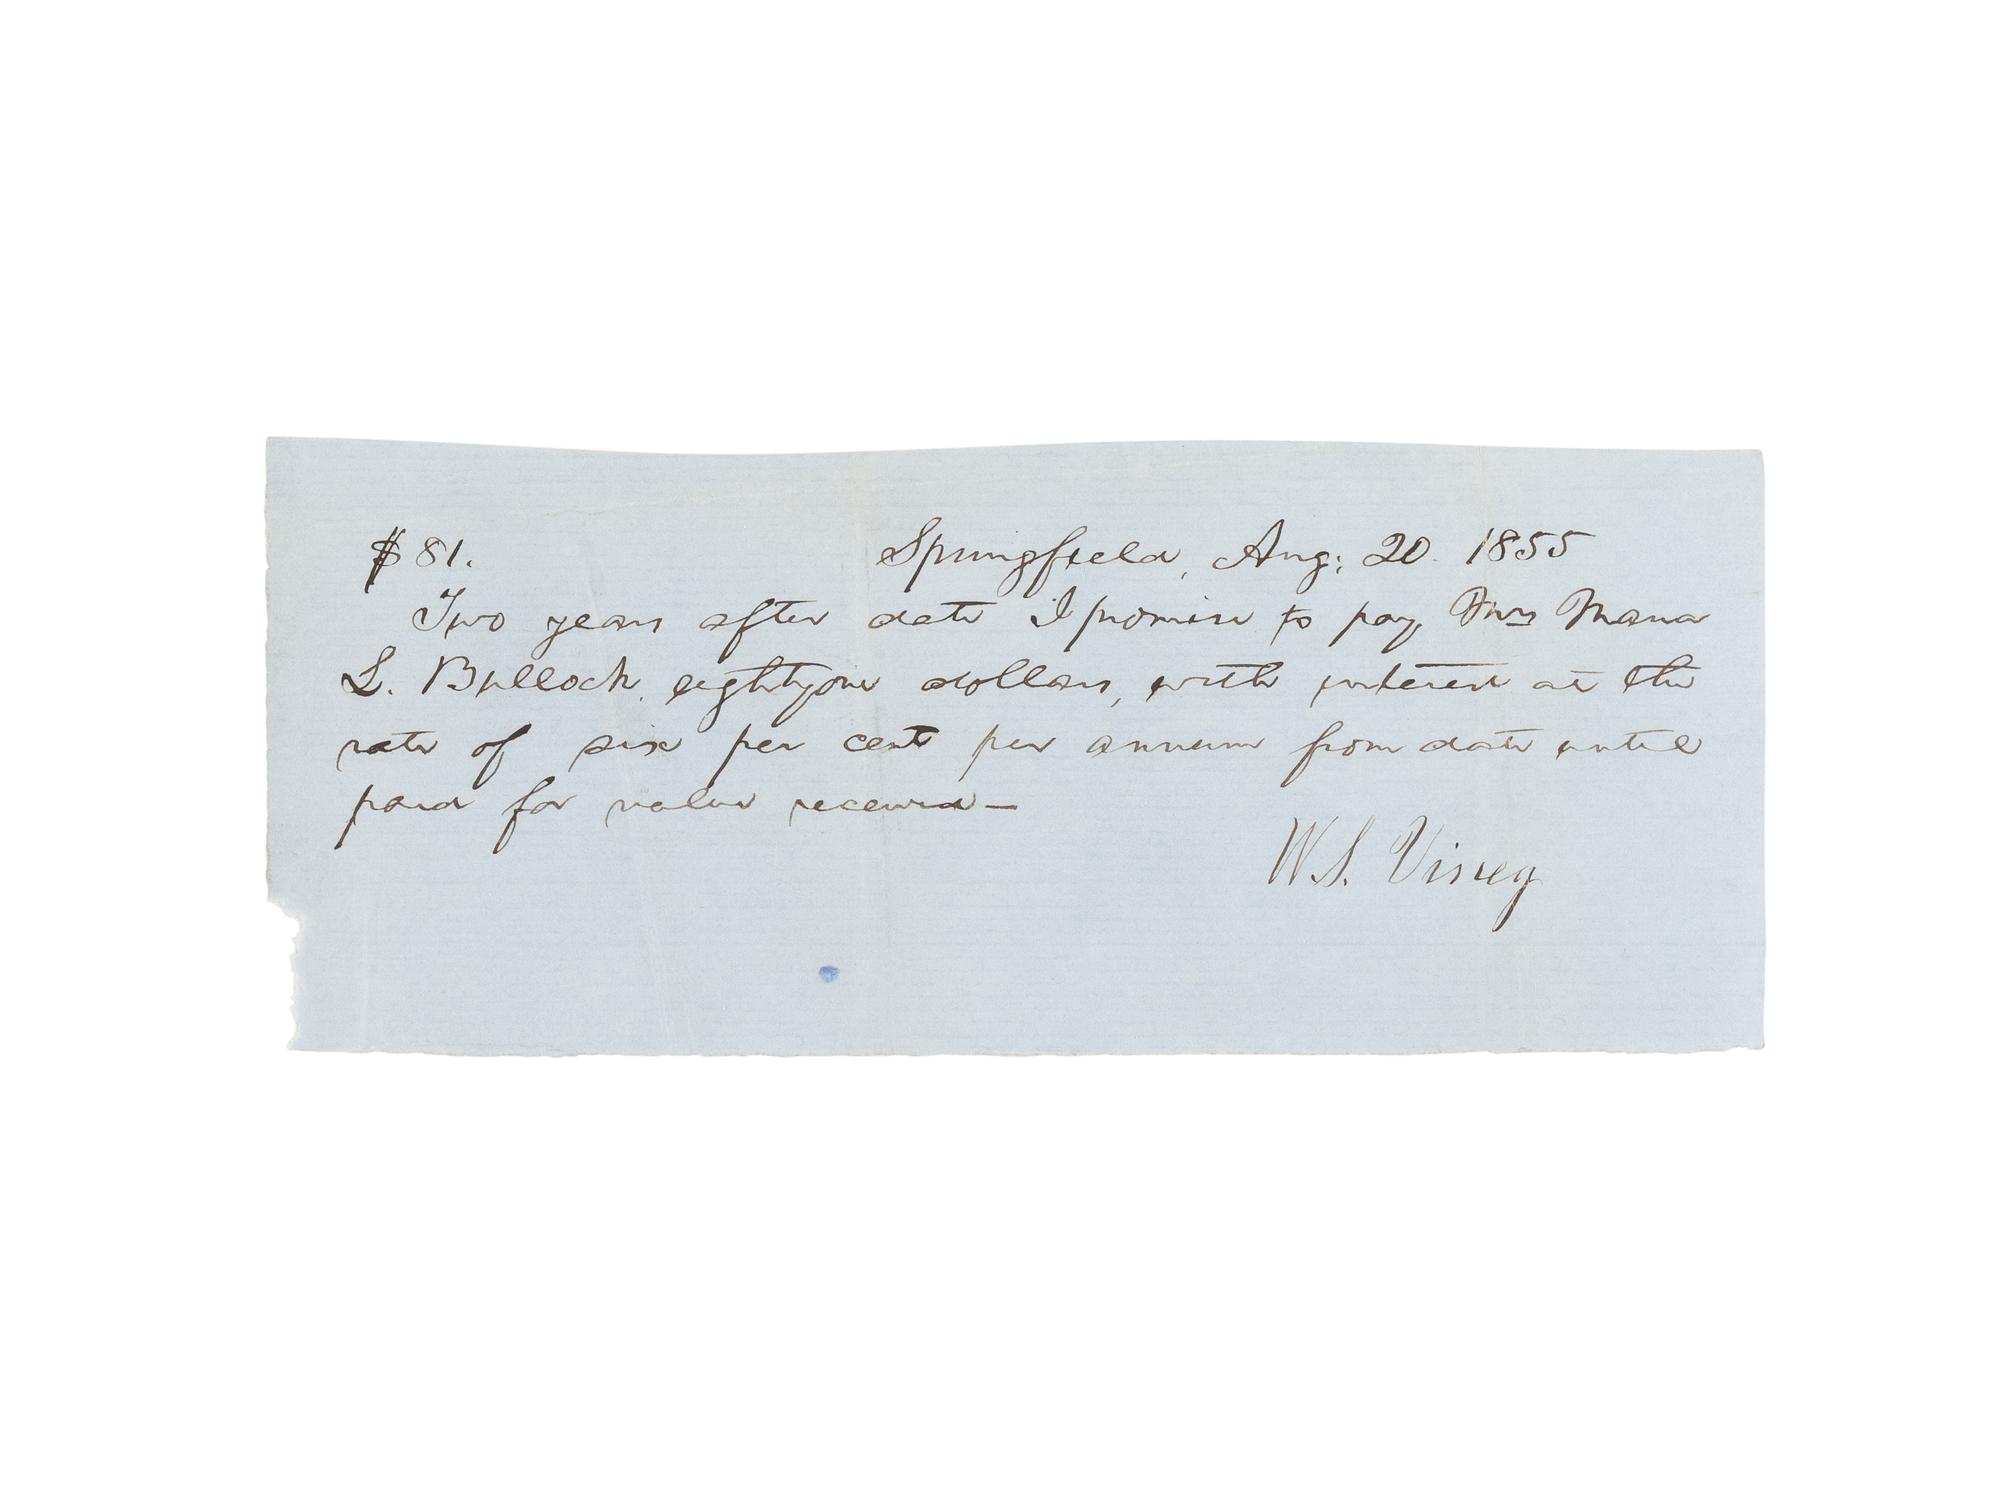 $81. Springfield, Aug; 20. 1855
Two years after date I promise to pay Mrs Maria
L. Bullock, eightyone dollars, with interest at the
rate of six per cent per annum from date until
paid for value received—
W.S. Viney